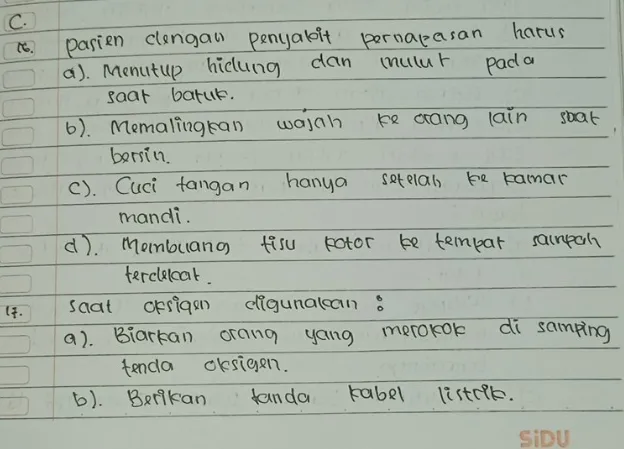 C.
16. pasien dengan penyakit pernapasan harus
a). Menutup hidung dan mulut pada
saat batuk.
b). Memalingkan wajah ke orang lain saat
bersin.
c). Cuci tangan hanya setelah ke kamar
mandi.
d). Membuang tisu kotor ke tempat sampah
terdekat.
17. saat oksigen digunakan :
a). Biarkan orang yang merokok di samping
tenda oksigen.
b). Berikan tanda kabel listrik.
SiDU